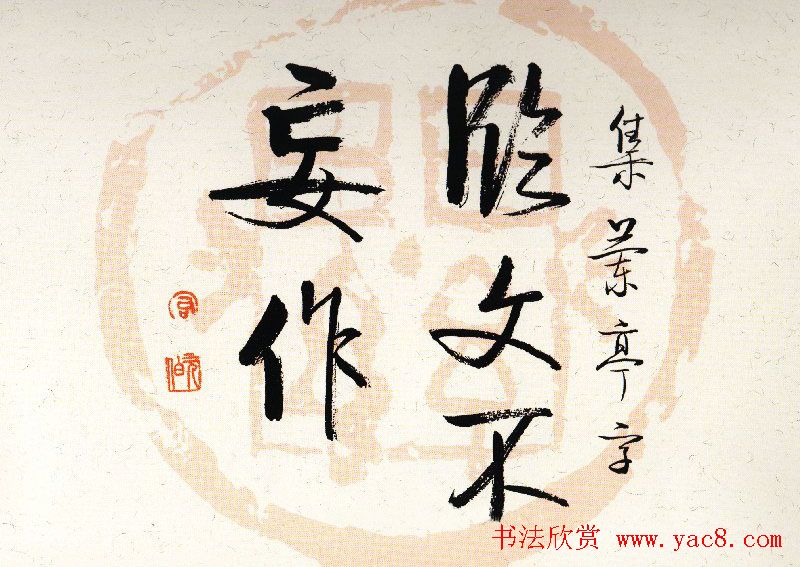 集兰亭字
临文不
妄作
书法欣赏 www.yac8.com